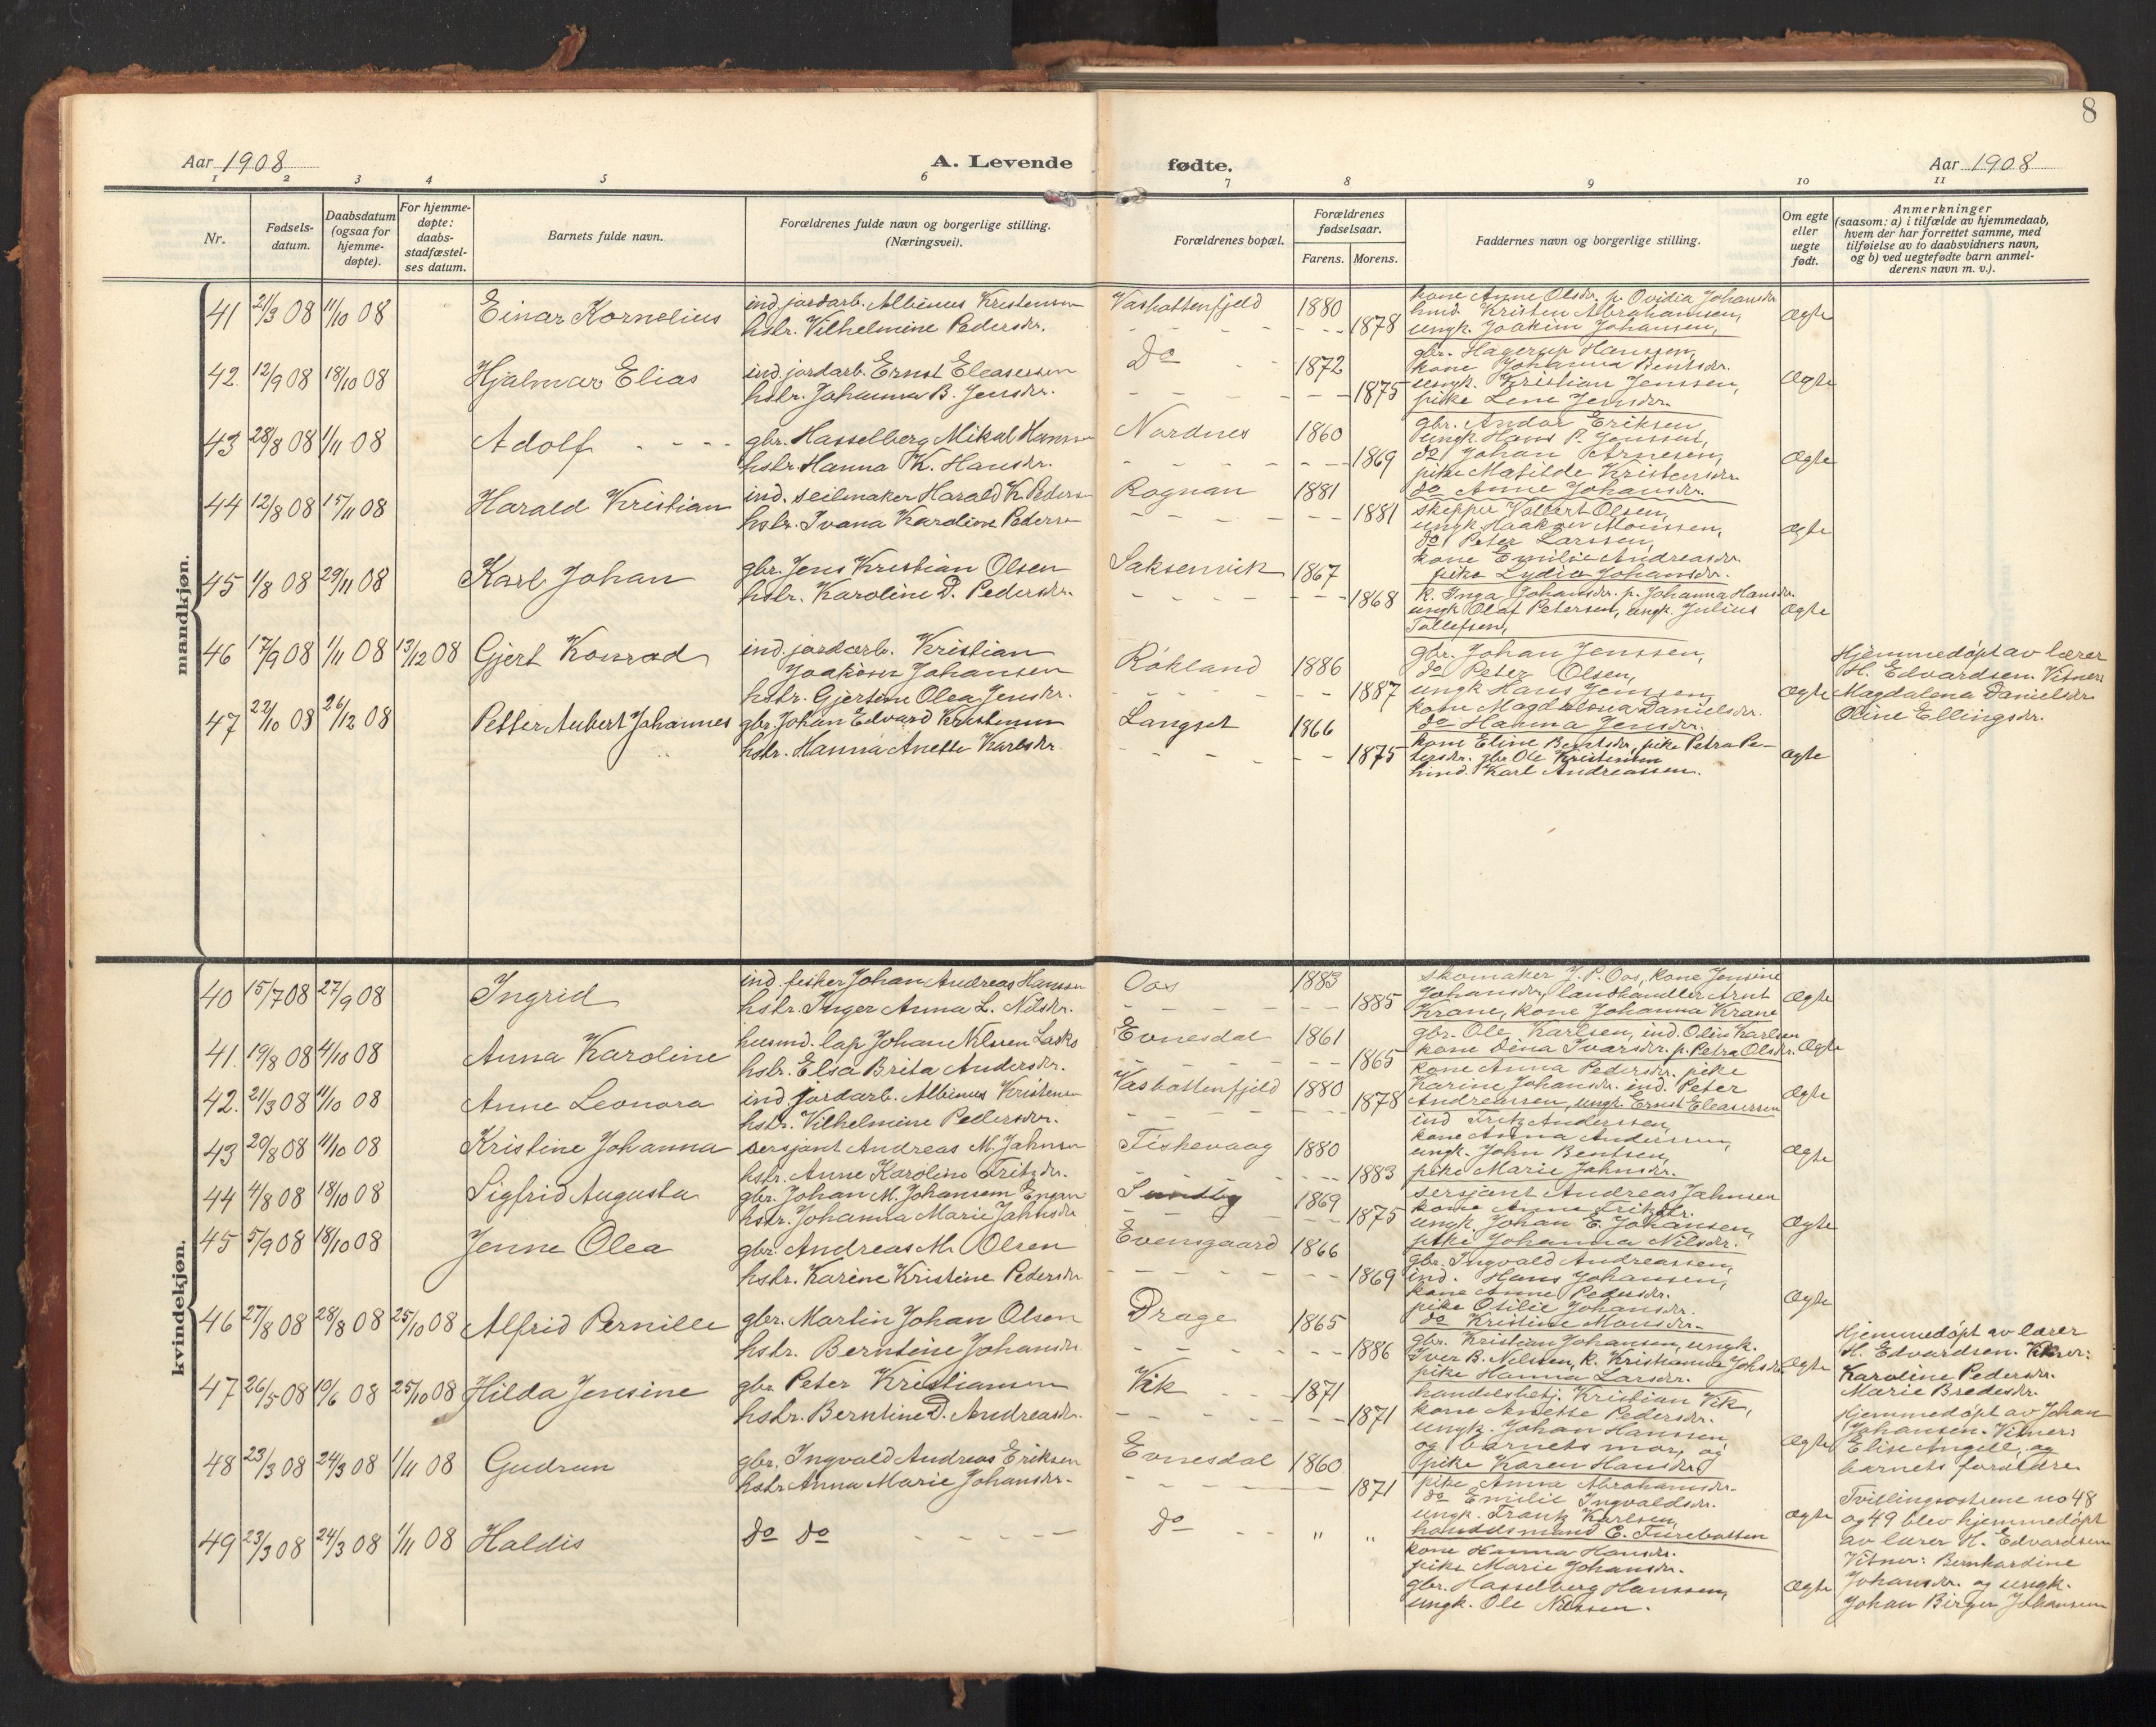 8
Aar 1908
A. Levende fødte.
Aar 1908
1 2 3 4 5 6 7 8 9 10 11
Nr.
Fødsels-
datum.
Daabsdatum
(ogsaa for
hjemme-
døpte).
For hjemme-
døpte:
daabs-
stadfæstel-
ses datum.
Barnets fulde navn.
Forældrenes fulde navn og borgerlige stilling.
(Næringsvei).
Forældrenes bopæl.
Forældrenes
fødselsaar.
Farens. Morens.
Faddernes navn og borgerlige stilling.
Om egte
eller
uegte
født.
Anmerkninger
(saasom: a) i tilfælde av hjemmedaab,
hvem der har forrettet samme, med
tilføielse av to daabsvidners navn,
og b) ved uegtefødte barn anmel-
derens navn m. v.).
mandkjøn.
41 21/3 08 11/10 08 Einar Kornelius
ind. jordarb. Albinus Kristensen
hstr. Vilhelmine Pedersdr.
Vasbottenfjeld 1880
1878
kone Anne Olsdr. p. Ovidia Johansdr
hmd. Kristen Abrahamsen,
ungk. Joakim Johansen,
Ægte
42. 12/9 08 18/10 08 Hjalmar Elias
ind. jordarb. Ernst Eleasersen
hstr. Johanna B. Jensdr.
Do 1872
1875
gbr. Hagerup Hanssen,
kone Johanna Bentsdr.
ungk. Kristian Jenssen,
pike Lene Jensdr.
Ægte
43 28/8 08 1/11 08 Adolf
gbr. Hasselberg Mikal Hanssen
hstr. Hanna K. Hansdr.
Nordnes 1860
1869
gbr. Andor Eriksen
ungk. Hans P. Jenssen,
do Johan Arnesen,
pike Matilde Kristensdr.
do Anne Johansdr.
Ægte
44 12/8 08 15/11 08 Harald Kristian
ind. seilmaker Harald K. Peders
hstr. Ivana Karoline Peders
Rognan 1881
1881
skipper Volbert Olsen,
ungk. Haakon Monssen,
do Peter Larssen,
kone Emilie Andreasdr.
pike Lydia Johansdr.
Ægte
45 1/8 08 29/11 08 Karl Johan
gbr. Jens Kristian Olsen
hstr. Karoline D. Pedersdr.
Saksenvik 1867
1868
k. Inga Johansdr. p. Johanna Hansdr.
ungk Olaf Petersen, ungk. Julius
Tollefsen,
Ægte
46 17/9 08 1/11 08 13/12 08 Gjert Konrad
ind. jordarb. Kristian
Joakim Johansen
hstr. Gjertine Olea Jensdr.
Røkland 1886
1887
gbr. Johan Jenssen,
do Peter Olsen,
ungk Hans Jenssen,
kone Magdalena Danielsdr.
do Hanna Jensdr.
Ægte
Hjemmedøpt av lærer
H. Edvardsen. Vitner:
Magdalena Danielsdr.
Oline Ellingsdr.
47 22/10 08 26/12 08 Petter Aubert Johannes
gbr. Johan Edvard Kristensen
hstr. Hanna Anette Karlsdr
Langset 1866
1875
kone Eline Bentsdr, pike Petra Pe-
tersdr. gbr Ole Kristensen
hmd. Karl Andreassen.
Ægte
kvindekjøn.
40 15/7 08 27/9 08 Ingrid
ind. fisker Johan Andreas Hanssen
hstr. Inger Anna L. Nilsdr.
Oos 1883
1885
skomaker J. P. Oos, kone Jensine
Johansdr, landhandler Arnt
Krane, kone Johanna Krane
Ægte
41. 19/8 08 4/10 08 Anna Karoline
husmd. lap Johan Nilsen Lasko
hstr. Elsa Brita Andersdr.
Evnesdal 1861
1865
gbr. Ole Karlsen, ind. Olus Karlsen
kone Dina Ivarsdr. p. Petra Olsdr.
Ægte
42. 21/3 08 11/10 08 Anne Leonora
ind. jordarb. Albinus Kristensen
hstr. Vilhelmine Pedersdr.
Vasbottenfjeld 1880
1878
kone Anna Pedersdr. pike
Karine Johansdr. ind. Peter
Andreassen, ungk. Ernst Eleasersen
Ægte
43 29/8 08 11/10 08 Kristine Johanna
sersjant Andreas M. Jahnsen
hstr. Anne Karoline Fritzdr.
Fiskevaag 1880
1883
ind Fritz Anderssen,
kone Anna Anderssen,
ungk. John Bentsen,
pike Marie Jahnsdr.
Ægte
44 4/8 08 18/10 08 Sigfrid Augusta
gbr. Johan M. Johansen Engan
hstr. Johanna Marie Jahnsdr
Sundby 1869
1875
sersjant Andreas Jahnsen
kone Anne Fritzdr.
ungk. Johan E. Johansen,
pike Johanna Nilsdr.
Ægte
45 5/9 08 18/10 08 Jenne Olea
gbr. Andreas M. Olsen
hstr. Karine Kristine Pedersdr
Evensgaard 1866
1869
gbr. Ingvald Andreassen,
ind. Hans Johansen,
kone Anne Pedersdr.
pike Otilie Johansdr.
do Kristine Monsdr.
Ægte
46 27/8 08 28/8 08 25/10 08 Alfrid Pernille
gbr. Martin Johan Olsen
hstr. Berntine Johansdr
Drage 1865
1886
gbr. Kristian Johansen, ungk.
Iver B. Nilsen, k. Kristianna Johsdr.
pike Hanna Larsdr.
Ægte
Hjemmedøpt av lærer
H. Edvardsen. Vitner:
Karoline Pedersdr.
Marie Bredesdr.
47 26/5 08 19/6 08 25/10 08 Hilda Jensine
gbr Peter Kristiansen
hstr. Berntine D. Andreasdr.
Vik 1871
1871
handelsbetj. Kristian Vik,
kone Anette Pedersdr.
ungk. Johan Hanssen
og barnets mor, og
pike Karen Hansdr.
Ægte
Hjemmedøpt av Johan
Johansen. Vitner:
Elise Angell, og
barnets forældre
48 23/3 08 24/3 08 1/11 08 Gudrun
gbr. Ingvald Andreas Eriksen
hstr Anna Marie Johansdr.
Evnesdal 1860
1871
pike Anna Abrahamsdr.
do Emilie Ingvaldsdr.
ungk. Frantz Karlsen,
handelsmand C. Turebotten
Ægte
Tvillingsøstrene no 48
og 49 blev hjemmedøpt
av lærer H. Edvardsen
Vitner: Bernhardine
Johansdr. og ungk.
Johan Birger Johansen
49 23/3 08 24/3 08 1/11 08 Haldis
do do
do " "
kone Hanna Hansdr.
pike Marie Johansdr.
gbr. Hasselberg Hanssen,
ungk. Ole Nilssen.
Ægte